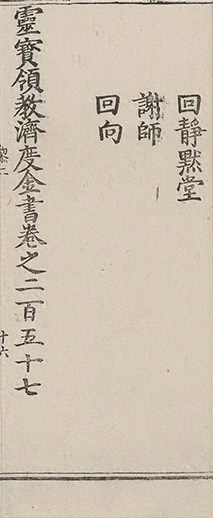 回靜默堂
謝師
回向
靈寶領教濟度金書卷之二百五十七
十六